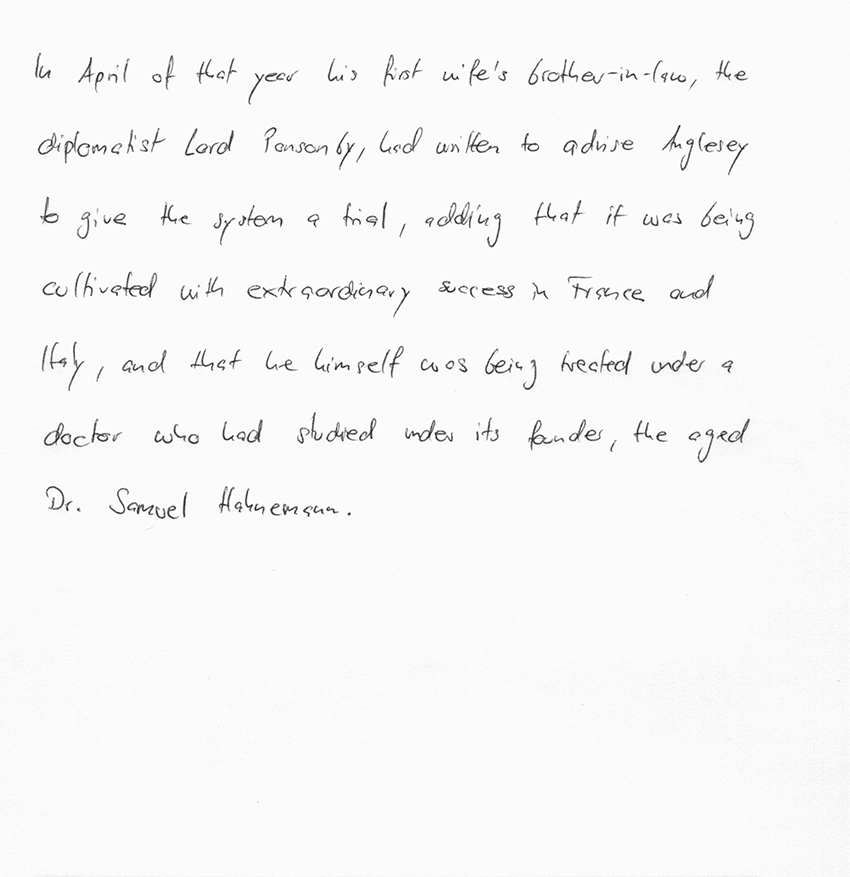 In April of that year his first wife's brother-in-law, the
diplomatist Lord Ponsonby, had written to advise Anglesey
to give the system a trial, adding that it was being
cultivated with extraordinary success in France and
Italy, and that he himself was being treated under a
doctor who had studied under its founder, the aged
Dr. Samuel Hahnemann.